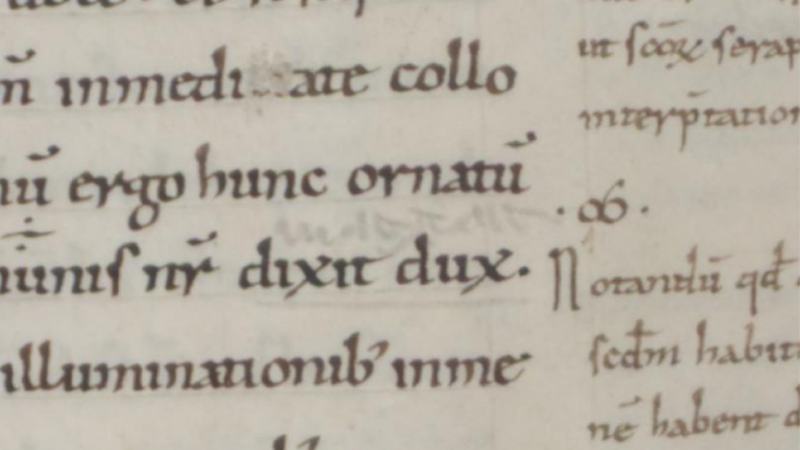 inmedi ate collo
ergo hunc ornatū
nr̄ dixit dux.
illuminationib' inme
ut sc̄oꝝ serap
interp̄tation
Notandū qđ
scđm habit
nē habent d